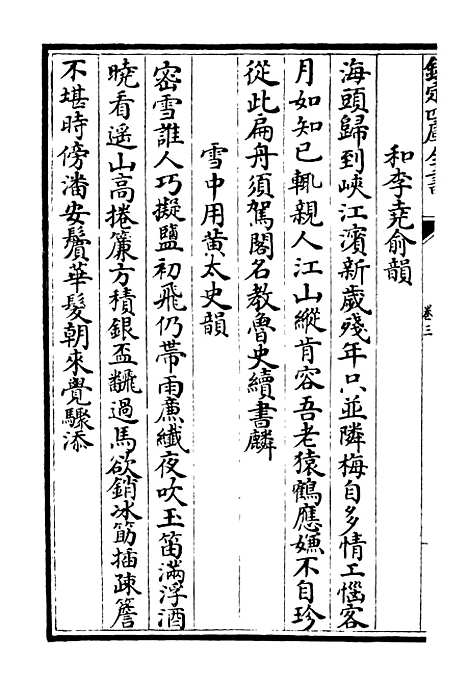 欽定四庫全書
卷三
和李堯俞韻
海頭歸到峽江濱新歲殘年只並隣梅自多情工惱客
月如知已輒親人江山縱肯容吾老猿鶴應嫌不自珍
從此扁舟須駕閣名教魯史續書麟
雪中用黄太史韻
密雪誰人巧擬鹽初飛仍帶雨㢘纎夜吹玉笛滿浮酒
曉看遥山高捲簾方積銀盃翻過馬欲銷冰筯插疎簷
不堪時傍潘安鬢華髮朝來覺驟添